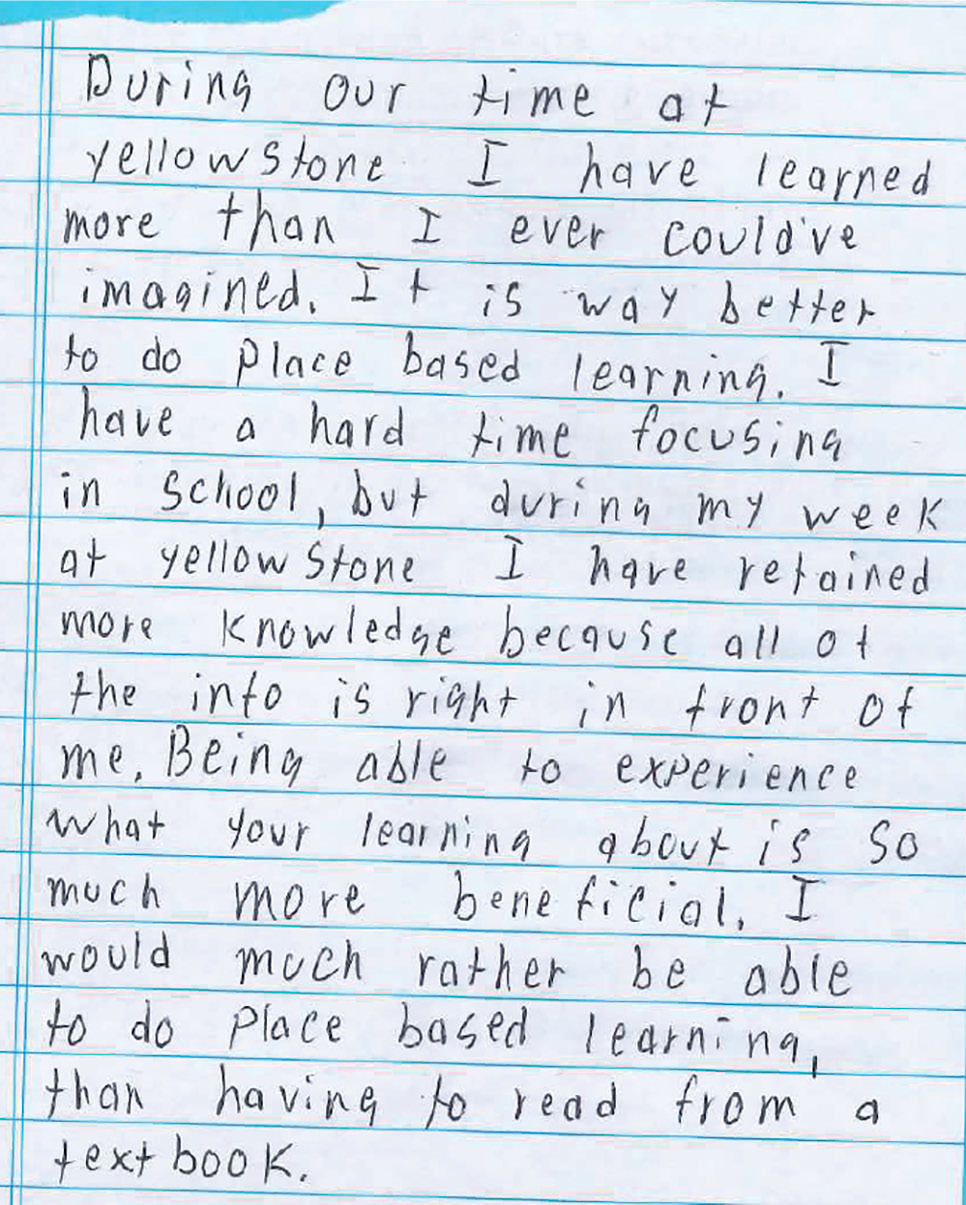 During our time at
yellowstone I have learned
more than I ever could've
imagined. It is way better
to do place based learning. I
have a hard time focusing
in school, but during my week
at yellowstone I have retained
more knowledge because all of
the info is right in front of
me. Being able to experience
what your learning about is so
much more beneficial. I
would much rather be able
to do place based learning,
than having to read from a
textbook.